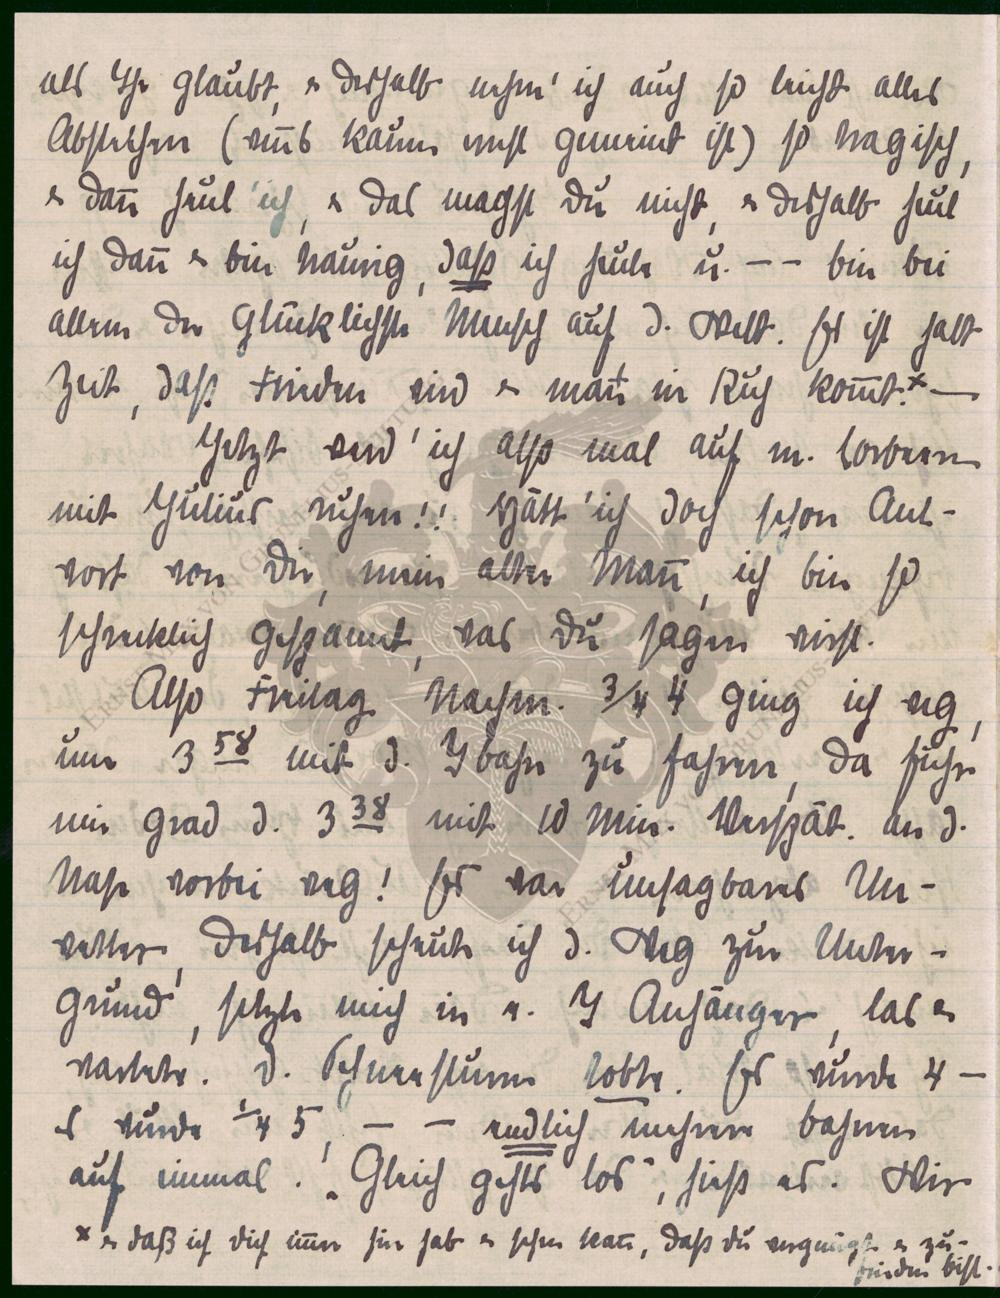 als Ihr glaubt, & deshalb nehm' ich auch so leicht alles
Abstehen (was kaum ernst gemeint ist) so tragisch,
& dañ heul' ich, & das magst Du nicht, & deshalb heul
ich dañ & bin traurig, daß ich heule u. -- bin bei
allem der glücklichste Mensch auf d. Welt. Es ist halt
Zeit, daß Frieden wird & mañ in Ruh kom̄t.* —
Jetzt werd' ich also mal auf m. Lorbeern
mit Julius ruhen!! Hätt' ich doch schon Ant-
wort von Dir, mein alter Mañ, ich bin so
schrecklich gespannt, was Du sagen wirst.
Also Freitag Nachm. 3/4 4 ging ich weg,
um 3 58 mit d. I bahn zu fahren, da fuhr
mir grad d. 3 38 mit 10 Min. Verspät. an d.
Nase vorbei weg! Es war unsagbares Un-
wetter, deshalb scheute ich d. Weg zur Unter-
grund, setzte mich in e. I Anhänger, las &
wartete. D. Schneesturm tobte. Es wurde 4 —
es wurde 1/4 5, — — endlich mehrere bahnen
auf einmal. „Gleich gehts los", hieß es. Wir
* & daß ich Dich im̄er hier hab & sehen kañ, daß du vergnügt & zu-
frieden bist.